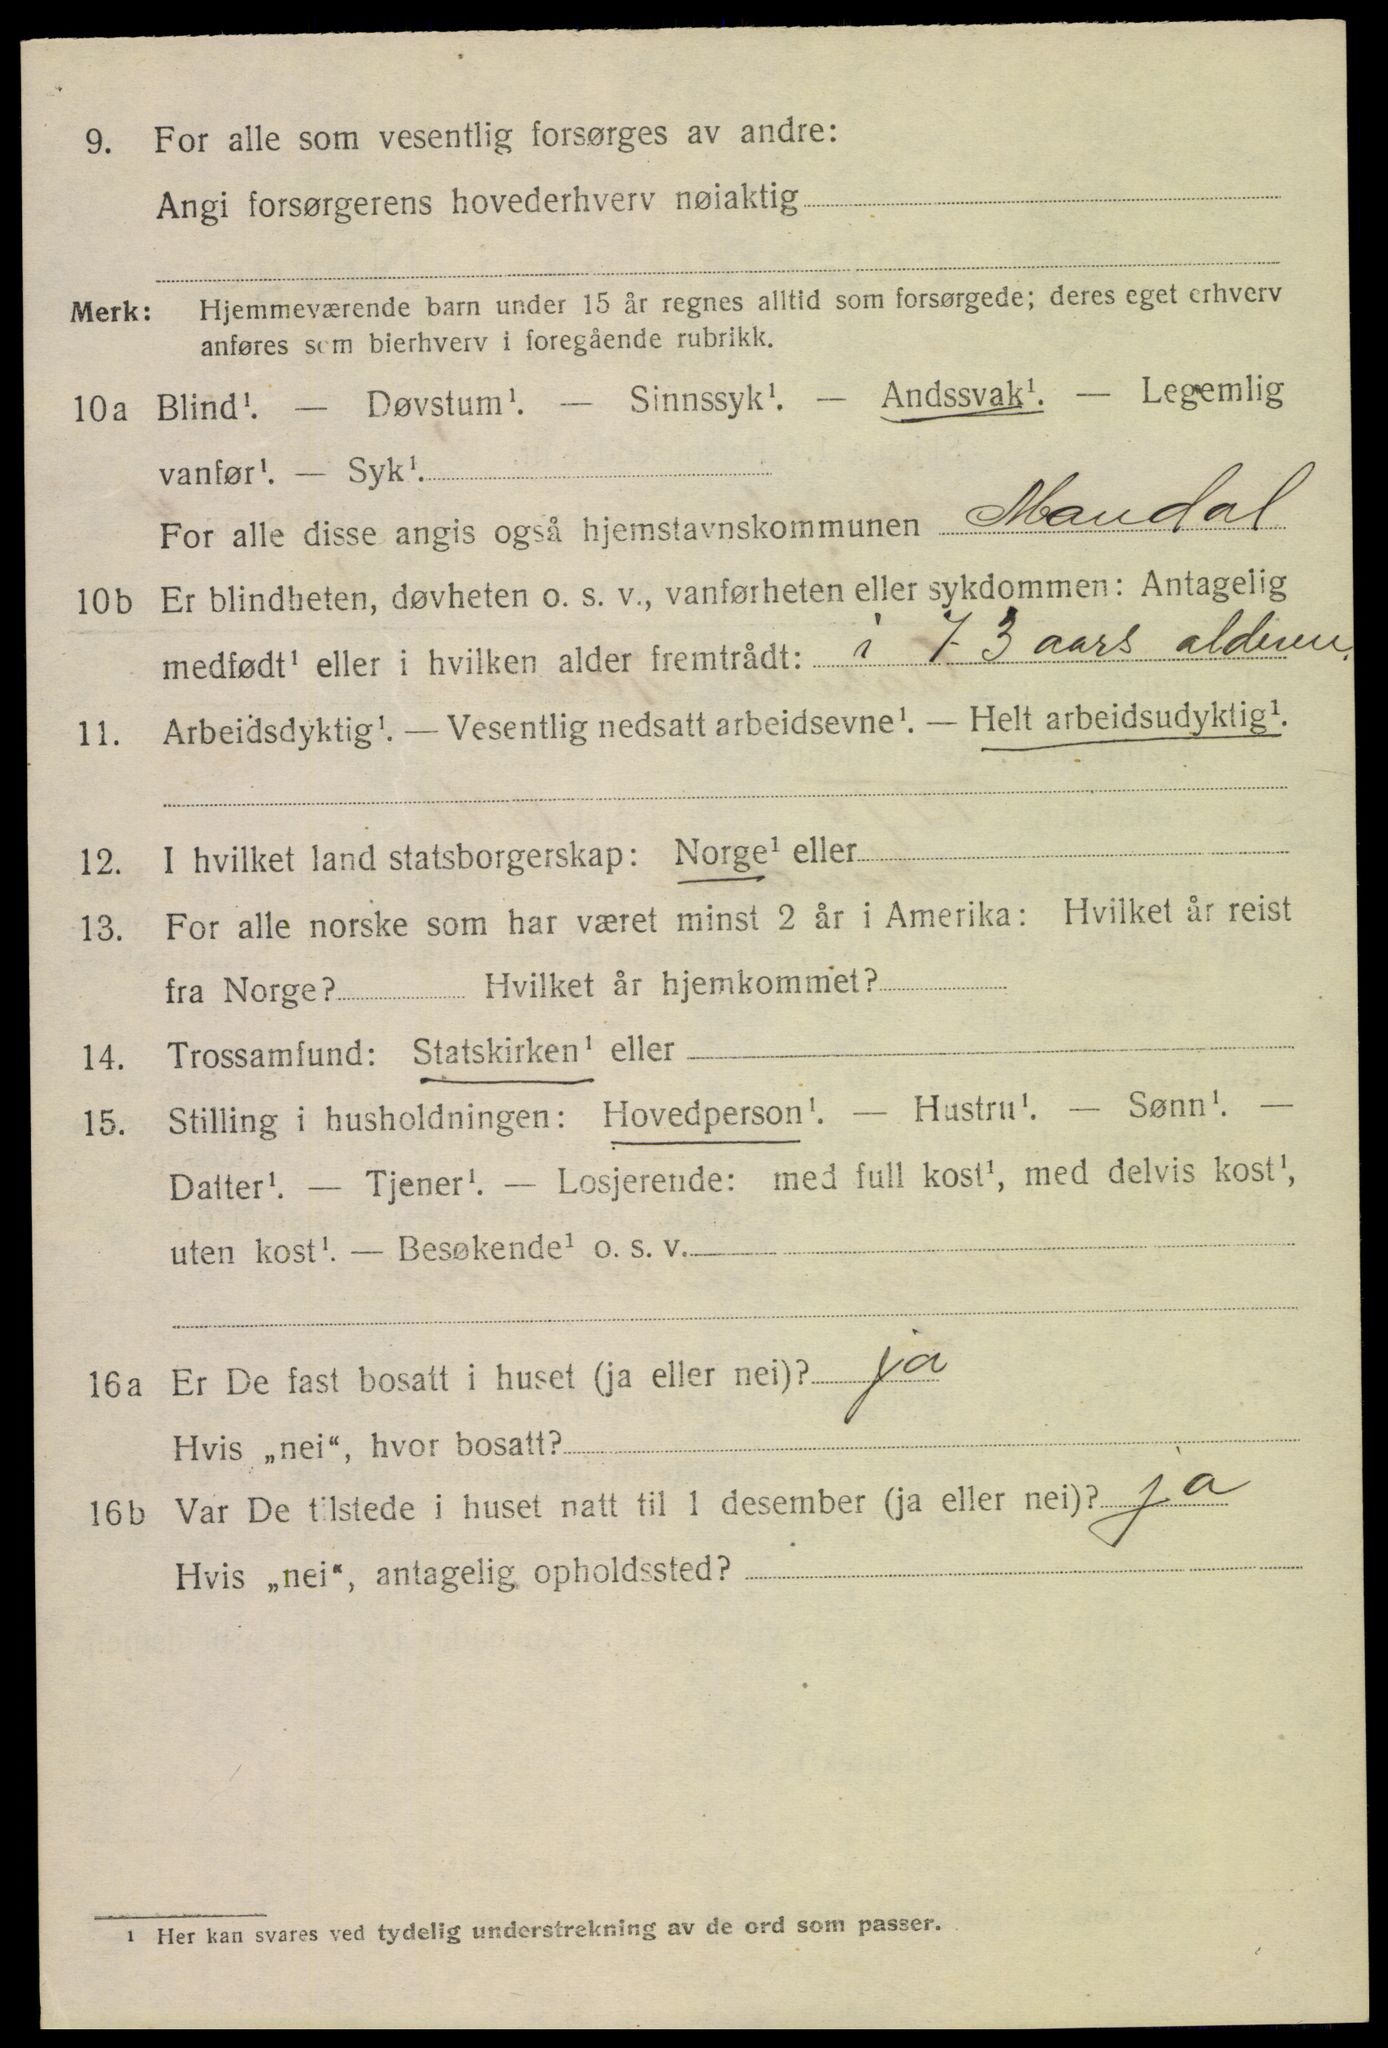 9. For alle som vesentlig forsørges av andre:
Angi forsørgerens hovederhverv nøiaktig
Merk: Hjemmeværende barn under 15 år regnes alltid som forsørgede; deres eget erhverv
anføres som bierhverv i foregående rubrikk.
10a Blind¹. — Døvstum¹. — Sinnssyk¹. — Andssvak¹. — Legemlig
vanfør¹. — Syk¹.
For alle disse angis også hjemstavnskommunen Mandal
10b Er blindheten, døvheten o. s. v., vanførheten eller sykdommen: Antagelig
medfødt¹ eller i hvilken alder fremtrådt: i 73 aars alderen.
11. Arbeidsdyktig¹. — Vesentlig nedsatt arbeidsevne¹. — Helt arbeidsudyktig¹.
12. I hvilket land statsborgerskap: Norge¹ eller
13. For alle norske som har været minst 2 år i Amerika: Hvilket år reist
fra Norge? Hvilket år hjemkommet?
14. Trossamfund: Statskirken¹ eller
15. Stilling i husholdningen: Hovedperson¹. — Hustru¹. — Sønn¹. —
Datter¹. — Tjener¹. — Losjerende: med full kost¹, med delvis kost¹,
uten kost¹. — Besøkende¹ o. s. v.
16a Er De fast bosatt i huset (ja eller nei)? ja
Hvis „nei“, hvor bosatt?
16b Var De tilstede i huset natt til 1 desember (ja eller nei)? ja
Hvis „nei“, antagelig opholdssted?
¹ Her kan svares ved tydelig understrekning av de ord som passer.